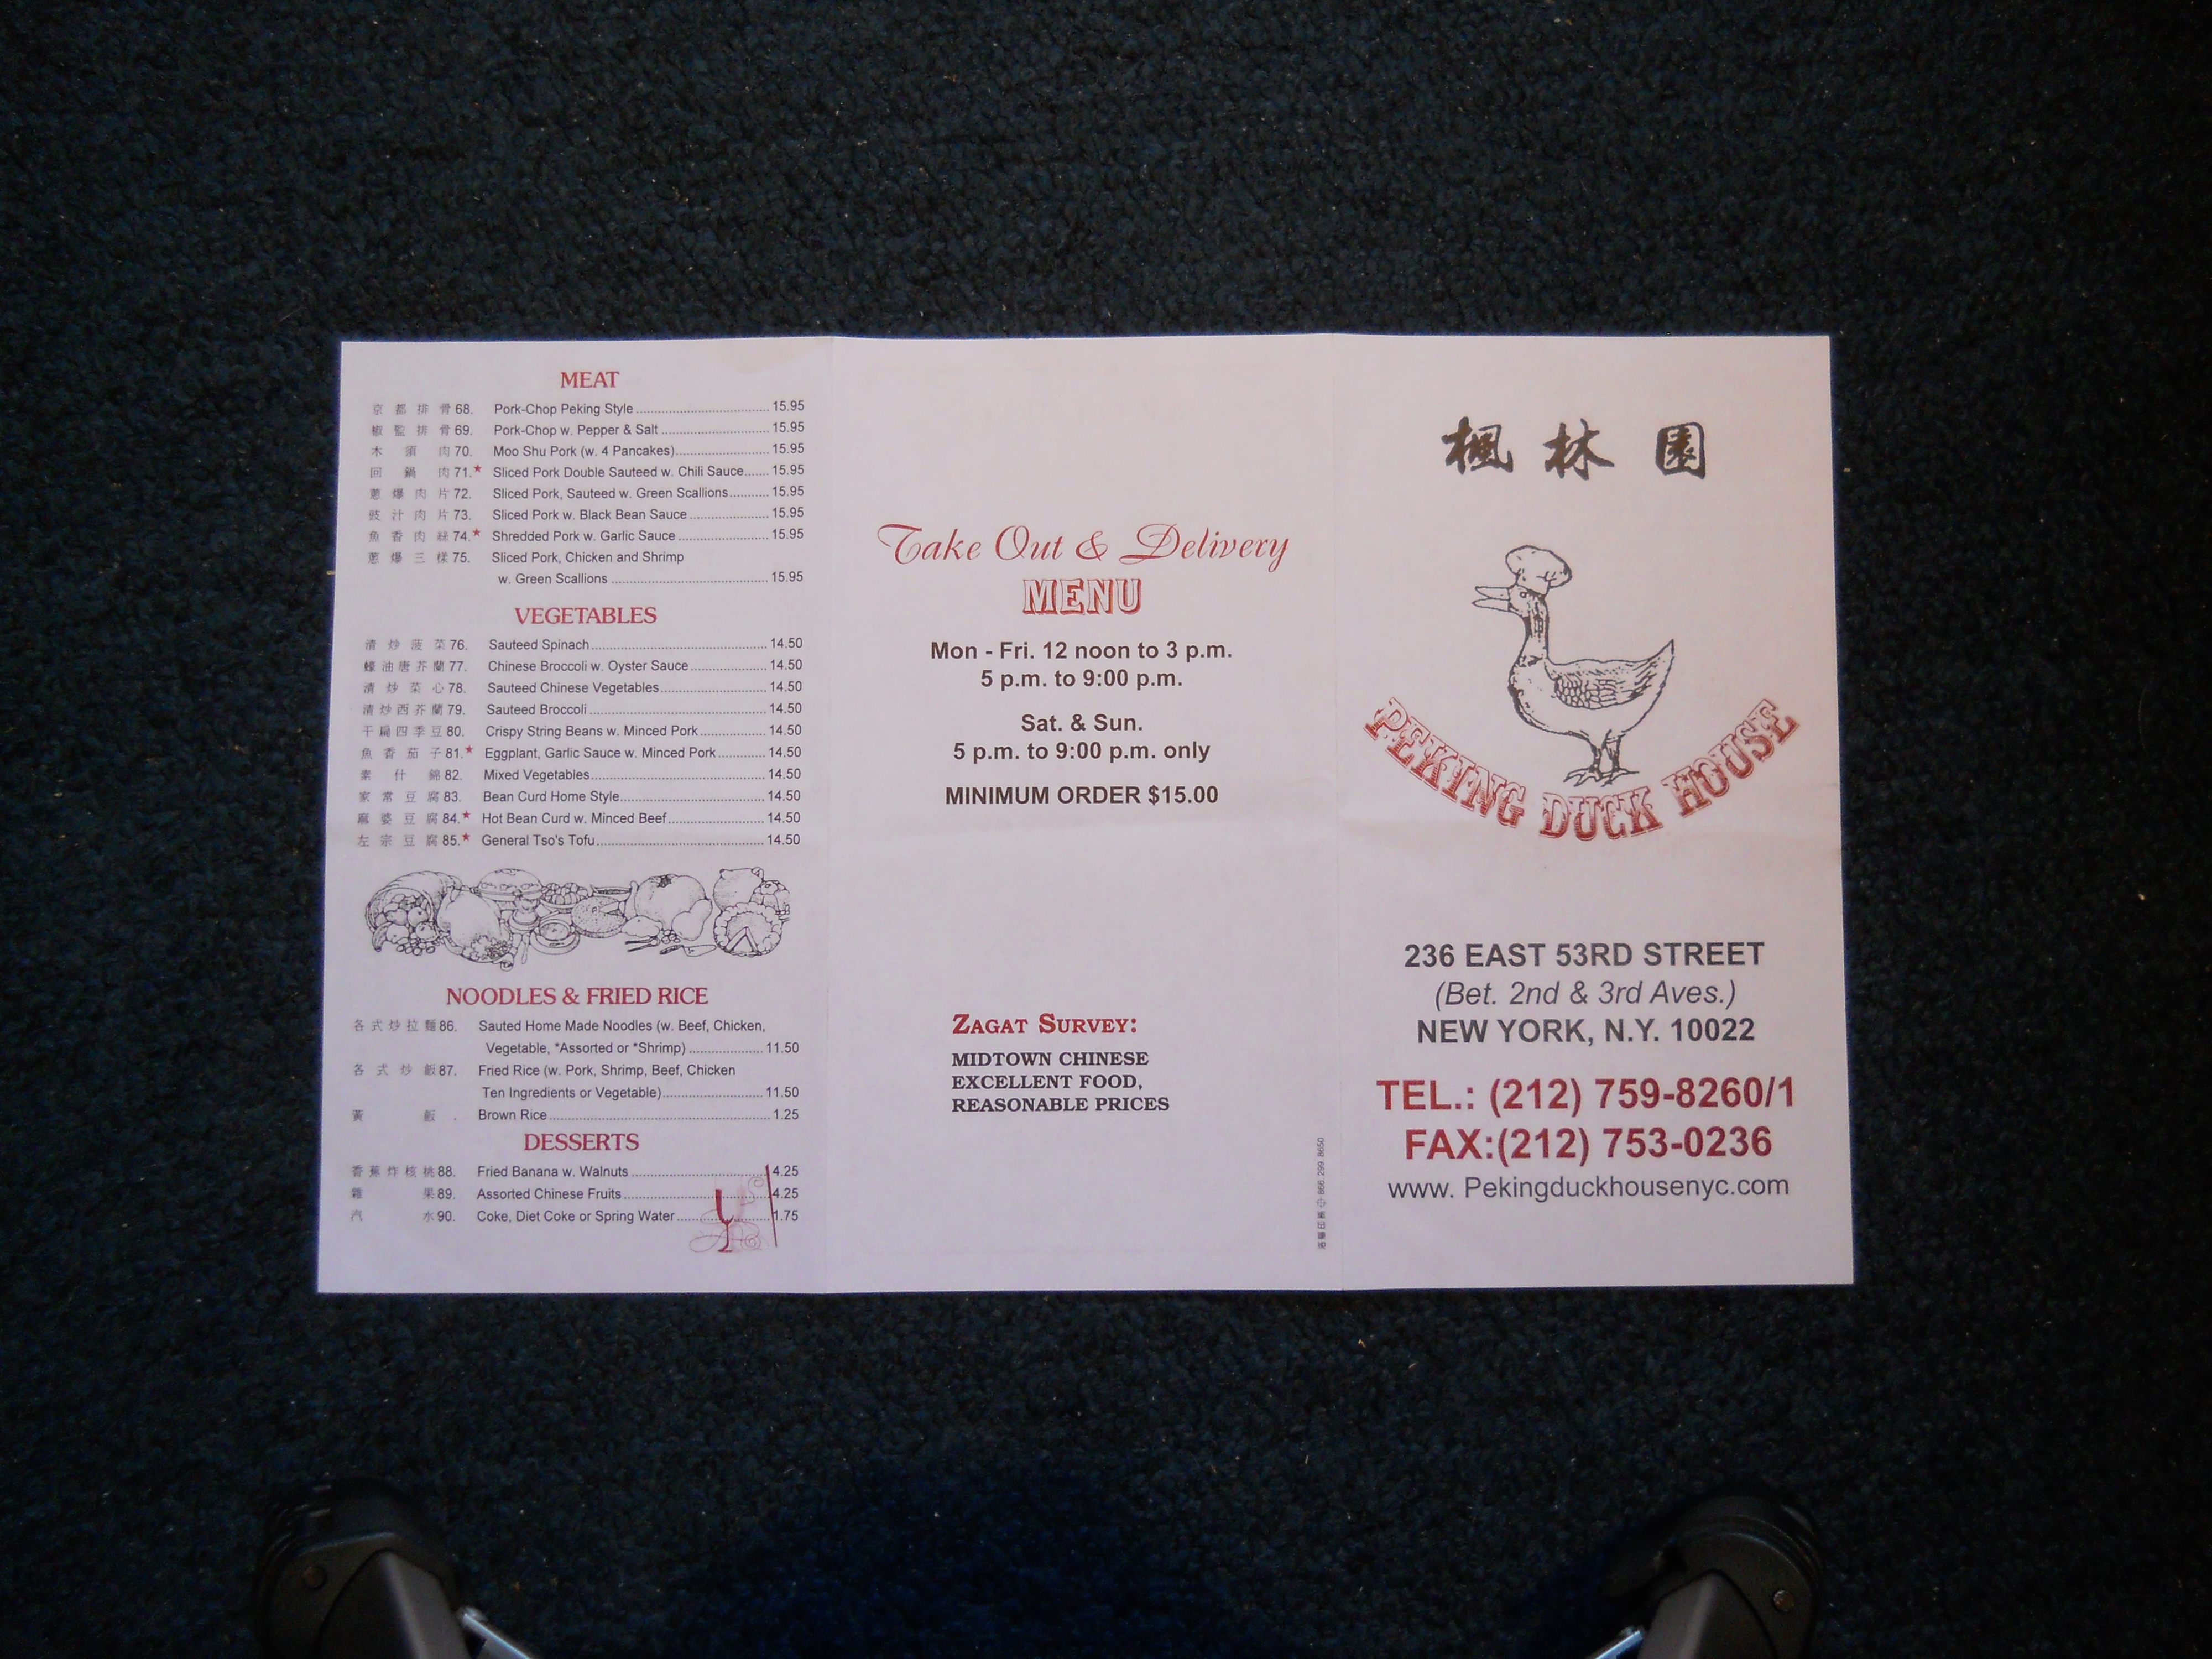 MEAT
京都排骨 68. Pork-Chop Peking Style 15.95
椒監排骨 69. Pork-Chop w. Pepper & Salt 15.95
木須肉 70. Moo Shu Pork (w. 4 Pancakes) 15.95
回鍋肉 71.★ Sliced Pork Double Sauteed w. Chili Sauce 15.95
蔥爆肉片 72. Sliced Pork, Sauteed w. Green Scallions 15.95
豉汁肉片 73. Sliced Pork w. Black Bean Sauce 15.95
魚香肉絲 74.★ Shredded Pork w. Garlic Sauce 15.95
蔥爆三樣 75. Sliced Pork, Chicken and Shrimp
w. Green Scallions 15.95
VEGETABLES
清炒菠菜 76. Sauteed Spinach 14.50
蠔油唐芥蘭 77. Chinese Broccoli w. Oyster Sauce 14.50
清炒菜心 78. Sauteed Chinese Vegetables 14.50
清炒西芥蘭 79. Sauteed Broccoli 14.50
干扁四季豆 80. Crispy String Beans w. Minced Pork 14.50
魚香茄子 81.★ Eggplant, Garlic Sauce w. Minced Pork 14.50
素什錦 82. Mixed Vegetables 14.50
家常豆腐 83. Bean Curd Home Style 14.50
麻婆豆腐 84.★ Hot Bean Curd w. Minced Beef 14.50
左宗豆腐 85.★ General Tso's Tofu 14.50
NOODLES & FRIED RICE
各式炒拉麵 86. Sauted Home Made Noodles (w. Beef, Chicken,
Vegetable, *Assorted or *Shrimp) 11.50
各式炒飯 87. Fried Rice (w. Pork, Shrimp, Beef, Chicken
Ten Ingredients or Vegetable) 11.50
黃飯 . Brown Rice 1.25
DESSERTS
香蕉炸核桃 88. Fried Banana w. Walnuts 4.25
雜果 89. Assorted Chinese Fruits 4.25
汽水 90. Coke, Diet Coke or Spring Water 1.75
Take Out & Delivery
MENU
Mon - Fri. 12 noon to 3 p.m.
5 p.m. to 9:00 p.m.
Sat. & Sun.
5 p.m. to 9:00 p.m. only
MINIMUM ORDER $15.00
ZAGAT SURVEY:
MIDTOWN CHINESE
EXCELLENT FOOD,
REASONABLE PRICES
866 299 8650
楓林園
PEKING DUCK HOUSE
236 EAST 53RD STREET
(Bet. 2nd & 3rd Aves.)
NEW YORK, N.Y. 10022
TEL.: (212) 759-8260/1
FAX:(212) 753-0236
www. Pekingduckhousenyc.com